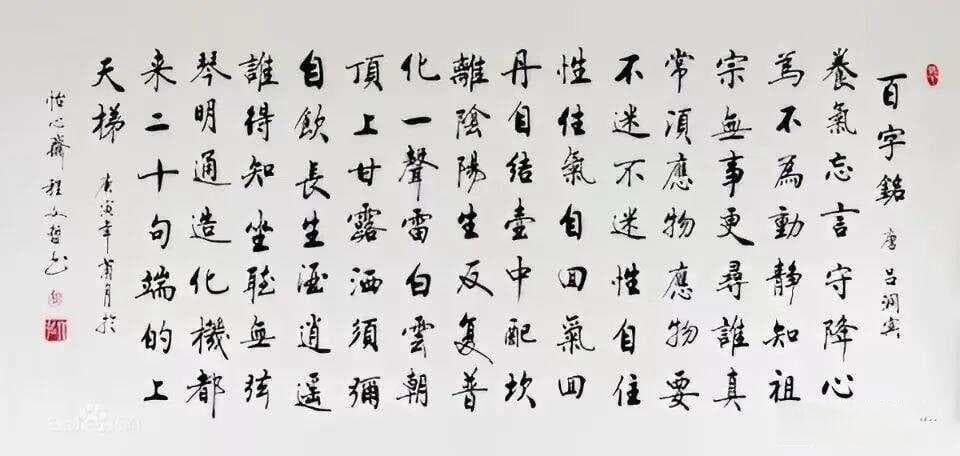 百字銘 唐 吕洞賓
養氣忘言守降心
為不為動靜知祖
宗無事更尋誰真
常須應物應物要
不迷不迷性自住
性住氣自回氣回
丹自结壺中配坎
離陰陽生反复普
化一聲雷白雲朝
頂上甘露洒須彌
自飲長生酒逍遥
誰得知坐聴無弦
琴明通造化機都
来二十句端的上
天梯 庚寅年菊月於
怡心齋 程文哲书